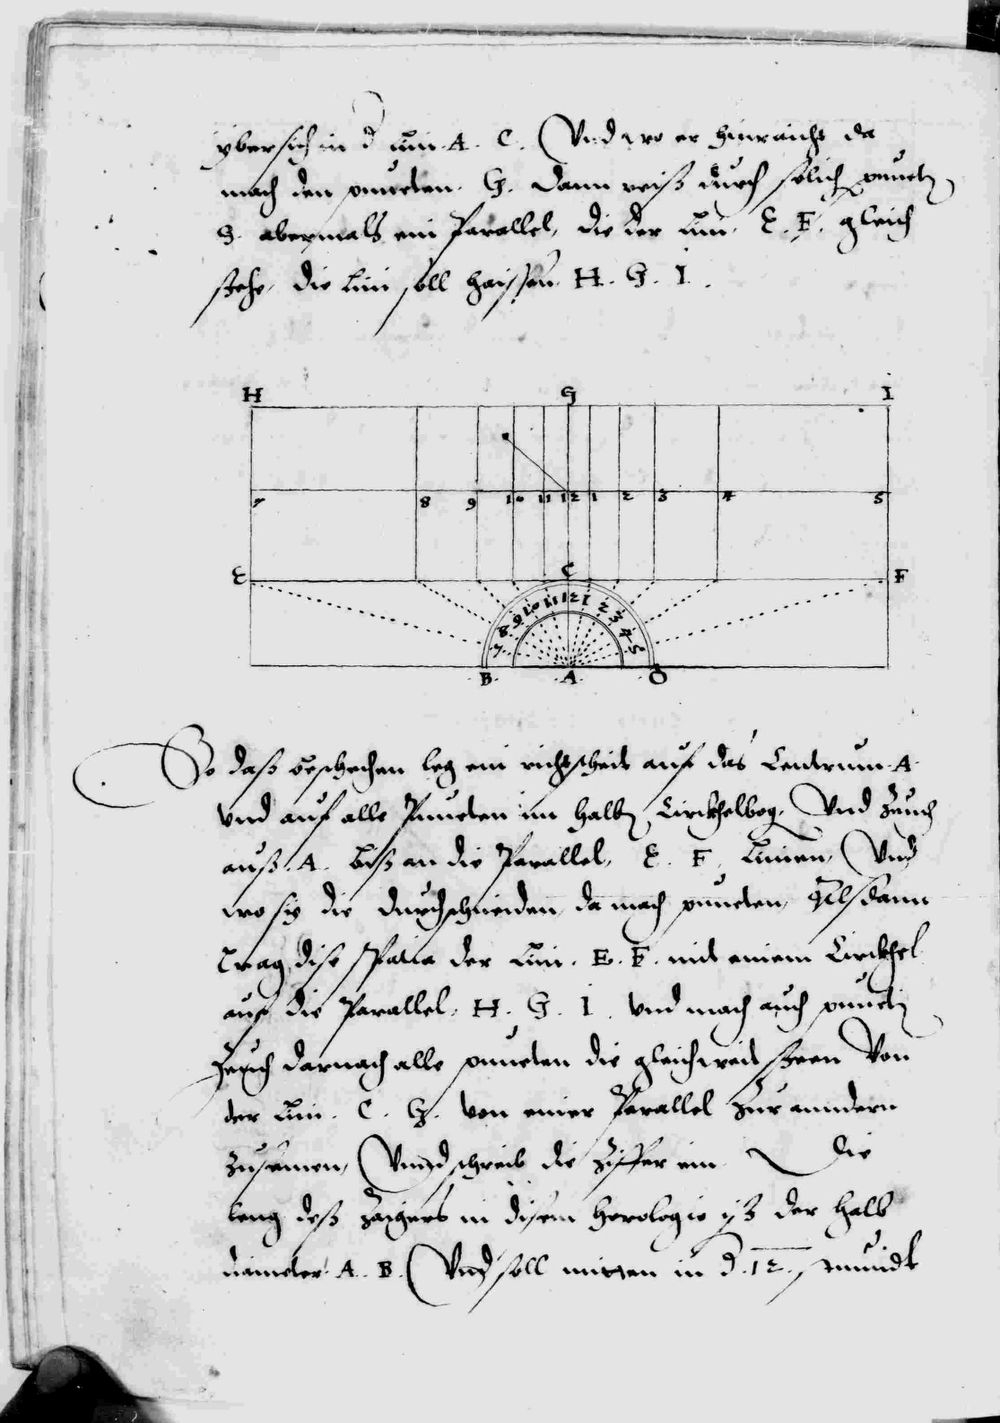 ybersich in d' Lini. A. C. Vnd wo er hinraicht da
mach den puncten. G. Dann reiß durch solich punct
G. abermals ein Parallel, die der Lini. E. F. gleich
stehe, die Lini soll haissen H. G. I.
H G I
7 8 9 10 11 12 1 2 3 4 5
E C F
7 8 9 10 11 12 1 2 3 4 5
B. A. D
So daß geschechen leg ein richtscheit auf das Centrum. A.
vnd auf alle Puncten im halb Circkhelbog, Vnd zeuch
auß. A. biß an die Parallel, E. F. Linien, Vnd
wo sy die durchschneiden da mach puncten, Alsdann
Trag dise Spatia der Lini. E. F. mit einem Circkhel
auf die Parallel. H. G. I. vnd mach auch punct
Zeuch darnach alle puncten die gleich weit steen Von
der Lini. C. G. von einer Parallel zur anndern
zusamen, Vnnd schreib die Ziffer ein. Die
leng deß Zaigers in disem Horologio ist der halb
diameter. A. B. Vnd soll mitten in d'. 12. stundt